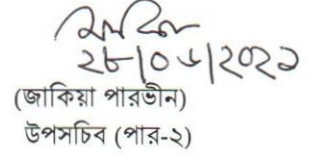 ২৮/০৬/২০২১
(জাকিয়া পারভীন)
উপসচিব (পার-২)